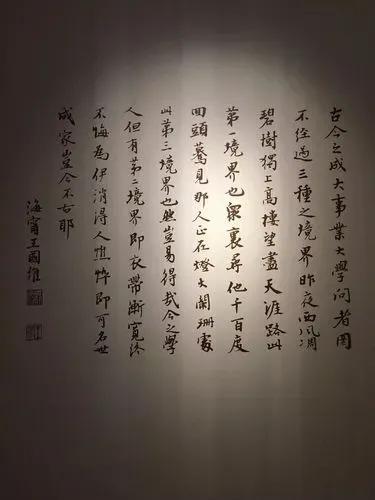 古今之成大事業大學問者罔
不經過三種之境界昨夜西風凋
碧樹獨上高樓望盡天涯路此
第一境界也眾裏尋他千百度
回頭驀見那人正在燈火闌珊處
此第三境界也然豈易得哉今之學
人但有第二境界即衣帶漸寬終
不悔為伊消得人憔悴即可名世
成家豈今不古耶
海寧王國維